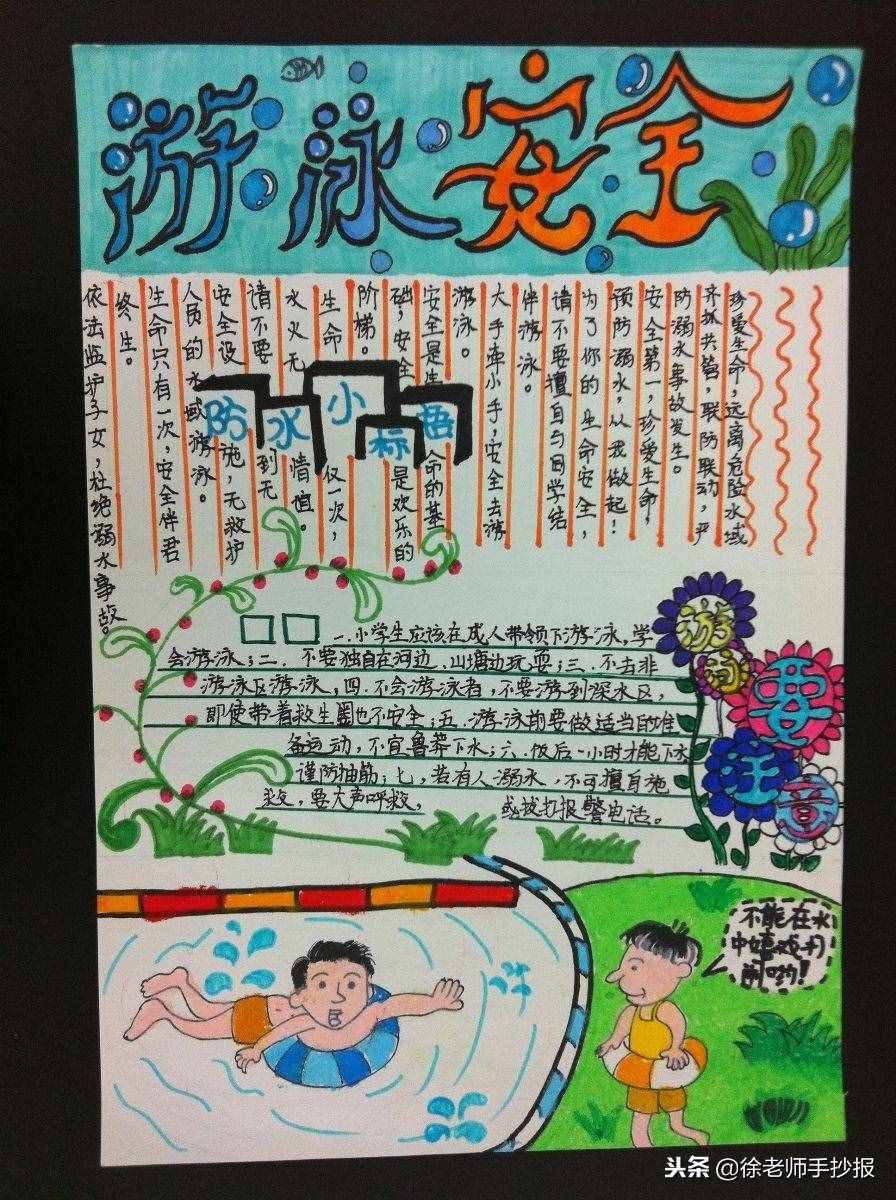 游泳安全
珍爱生命,远离危险水域
齐抓共管,联防联动,严
防溺水事故发生。
安全第一,珍爱生命,
预防溺水,从我做起!
为了你的生命安全,
请不要擅自与同学结
伴游泳。
大手牵小手,安全去游
游泳。
安全是生命的基
础,安全是欢乐的
阶梯。
生命仅一次,
水火无情谊。
请不要到无
安全设施,无救护
人员的水域游泳。
生命只有一次,安全伴君
终生。
依法监护子女,杜绝溺水事故。
防水小标语
一.小学生应该在成人带领下游泳,学
会游泳;二.不要独自在河边、山塘边玩耍;三.不去非
游泳区游泳,四.不会游泳者,不要游到深水区,
即使带着救生圈也不安全;五.游泳前要做适当的准
备运动,不宜鲁莽下水;六.饭后一小时才能下水
谨防抽筋;七,若有人溺水,不可擅自施
救,要大声呼救,或拔打报警电话。
游泳
要
注
意
不能在水
中嬉戏打
闹哟!
头条 @徐老师手抄报